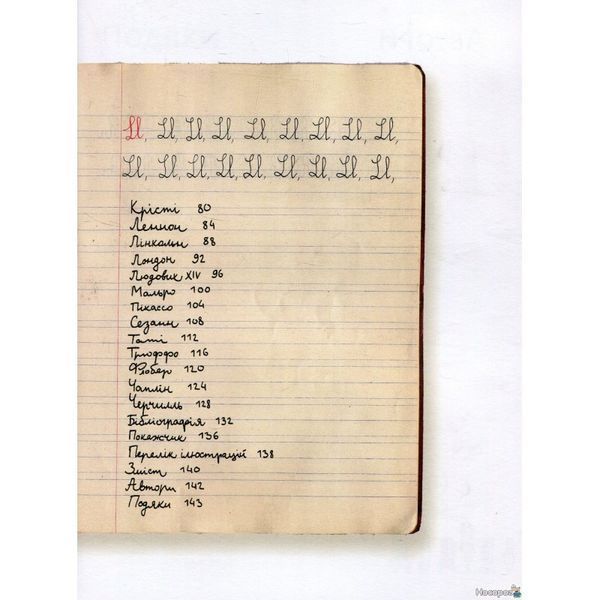 Ll, Ll, Ll, Ll, Ll, Ll, Ll, Ll, Ll,
Ll, Ll, Ll, Ll, Ll, Ll, Ll, Ll, Ll,
Крісті 80
Леннон 84
Лінкольн 88
Лондон 92
Людовик XIV 96
Мальро 100
Пікассо 104
Сезанн 108
Таті 112
Трюффо 116
Флобер 120
Чаплін 124
Черчилль 128
Бібліографія 132
Покажчик 136
Перелік ілюстрацій 138
Зміст 140
Автори 142
Подяки 143